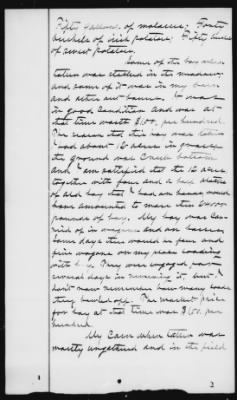 Fifty gallons of molasses; Forty
bushels of irish potatoes; Fifty bushels
of sweet potatoes.
Some of the hay when
taken was stacked in the meadow,
and some of it was in my barn
and other out houses. It was
in good condition and was at
that time worth $1.00. per hundred.
The season that this hay was taken
I had about 12 acres in grass
the ground was Creek bottom
and I am satisfied that the 12 acres
together with four and a half
of old hay that I had on hand would
have amounted to more than
pounds of hay. My hay was
of in wagons and on horses,
some days there would be four and
five wagons on my place loading
with it. They were engaged over
several days in removing it but I
don't now remember how many loads
they hauled off. The market price
for hay at the time was $1.00. per
hundred.
My Corn when taken was
mostly ungathered and in the field
1
2